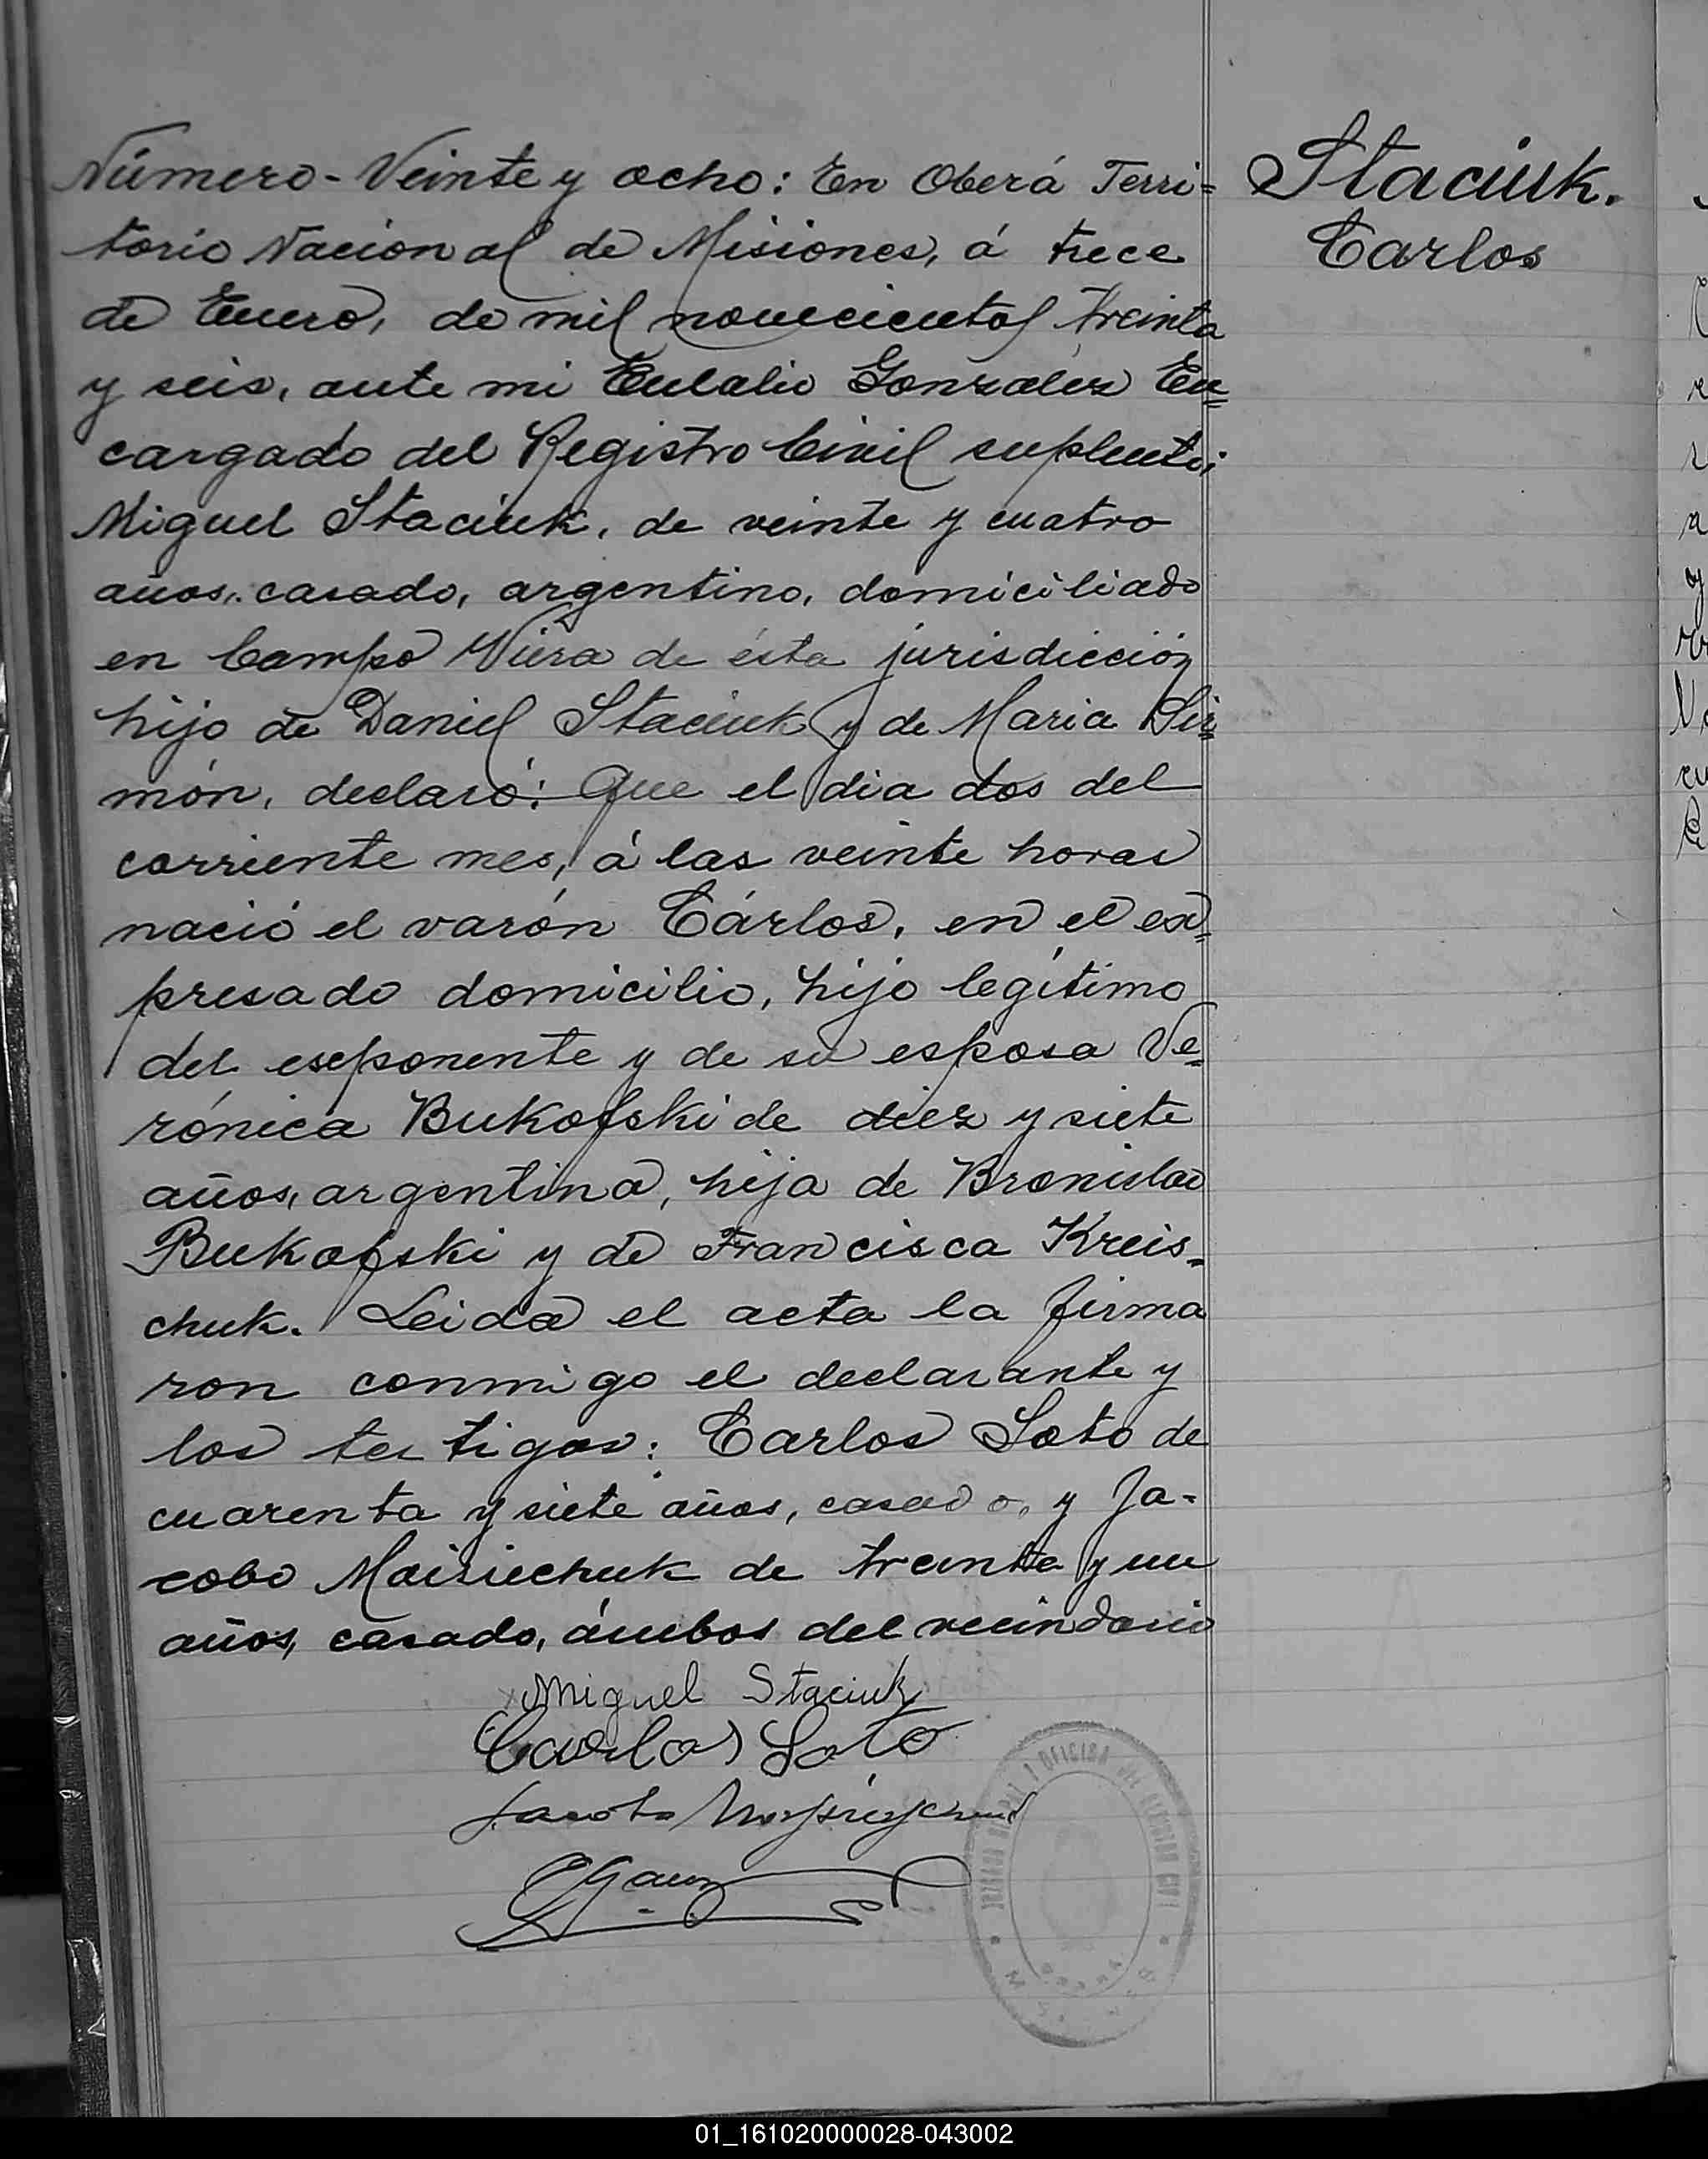 Número - Veinte y ocho: En Oberá Terri=
torio Nacional de Misiones, á trece
de Enero, de mil novecientos treinta
y seis, ante mi Eulalio Gonzalez En=
cargado del Registro Civil suplente;
Miguel Staciuk, de veinte y cuatro
años, casado, argentino, domiciliado
en Campo Viera de ésta jurisdicción
hijo de Daniel Staciuk y de Maria Si=
món, declaró: Que el dia dos del
corriente mes, á las veinte horas
nació el varón Cárlos, en el ex=
presado domicilio, hijo legítimo
del exponente y de su esposa Ve=
rónica Bukofski de diez y siete
años, argentina, hija de Bronislao
Bukofski y de Francisca Kreis=
chuk. Leida el acta la firma
ron conmigo el declarante y
los testigos: Carlos Soto de
cuarenta y siete años, casado, y Ja-
cobo Moisiechuk de treinta y un
años, casado, ámbos del vecindario
Miguel Staciuk
Carlos Soto
Jacobo
Staciuk.
Carlos
OFICINA DEL REGISTRO CIVIL
01_161020000028-043002